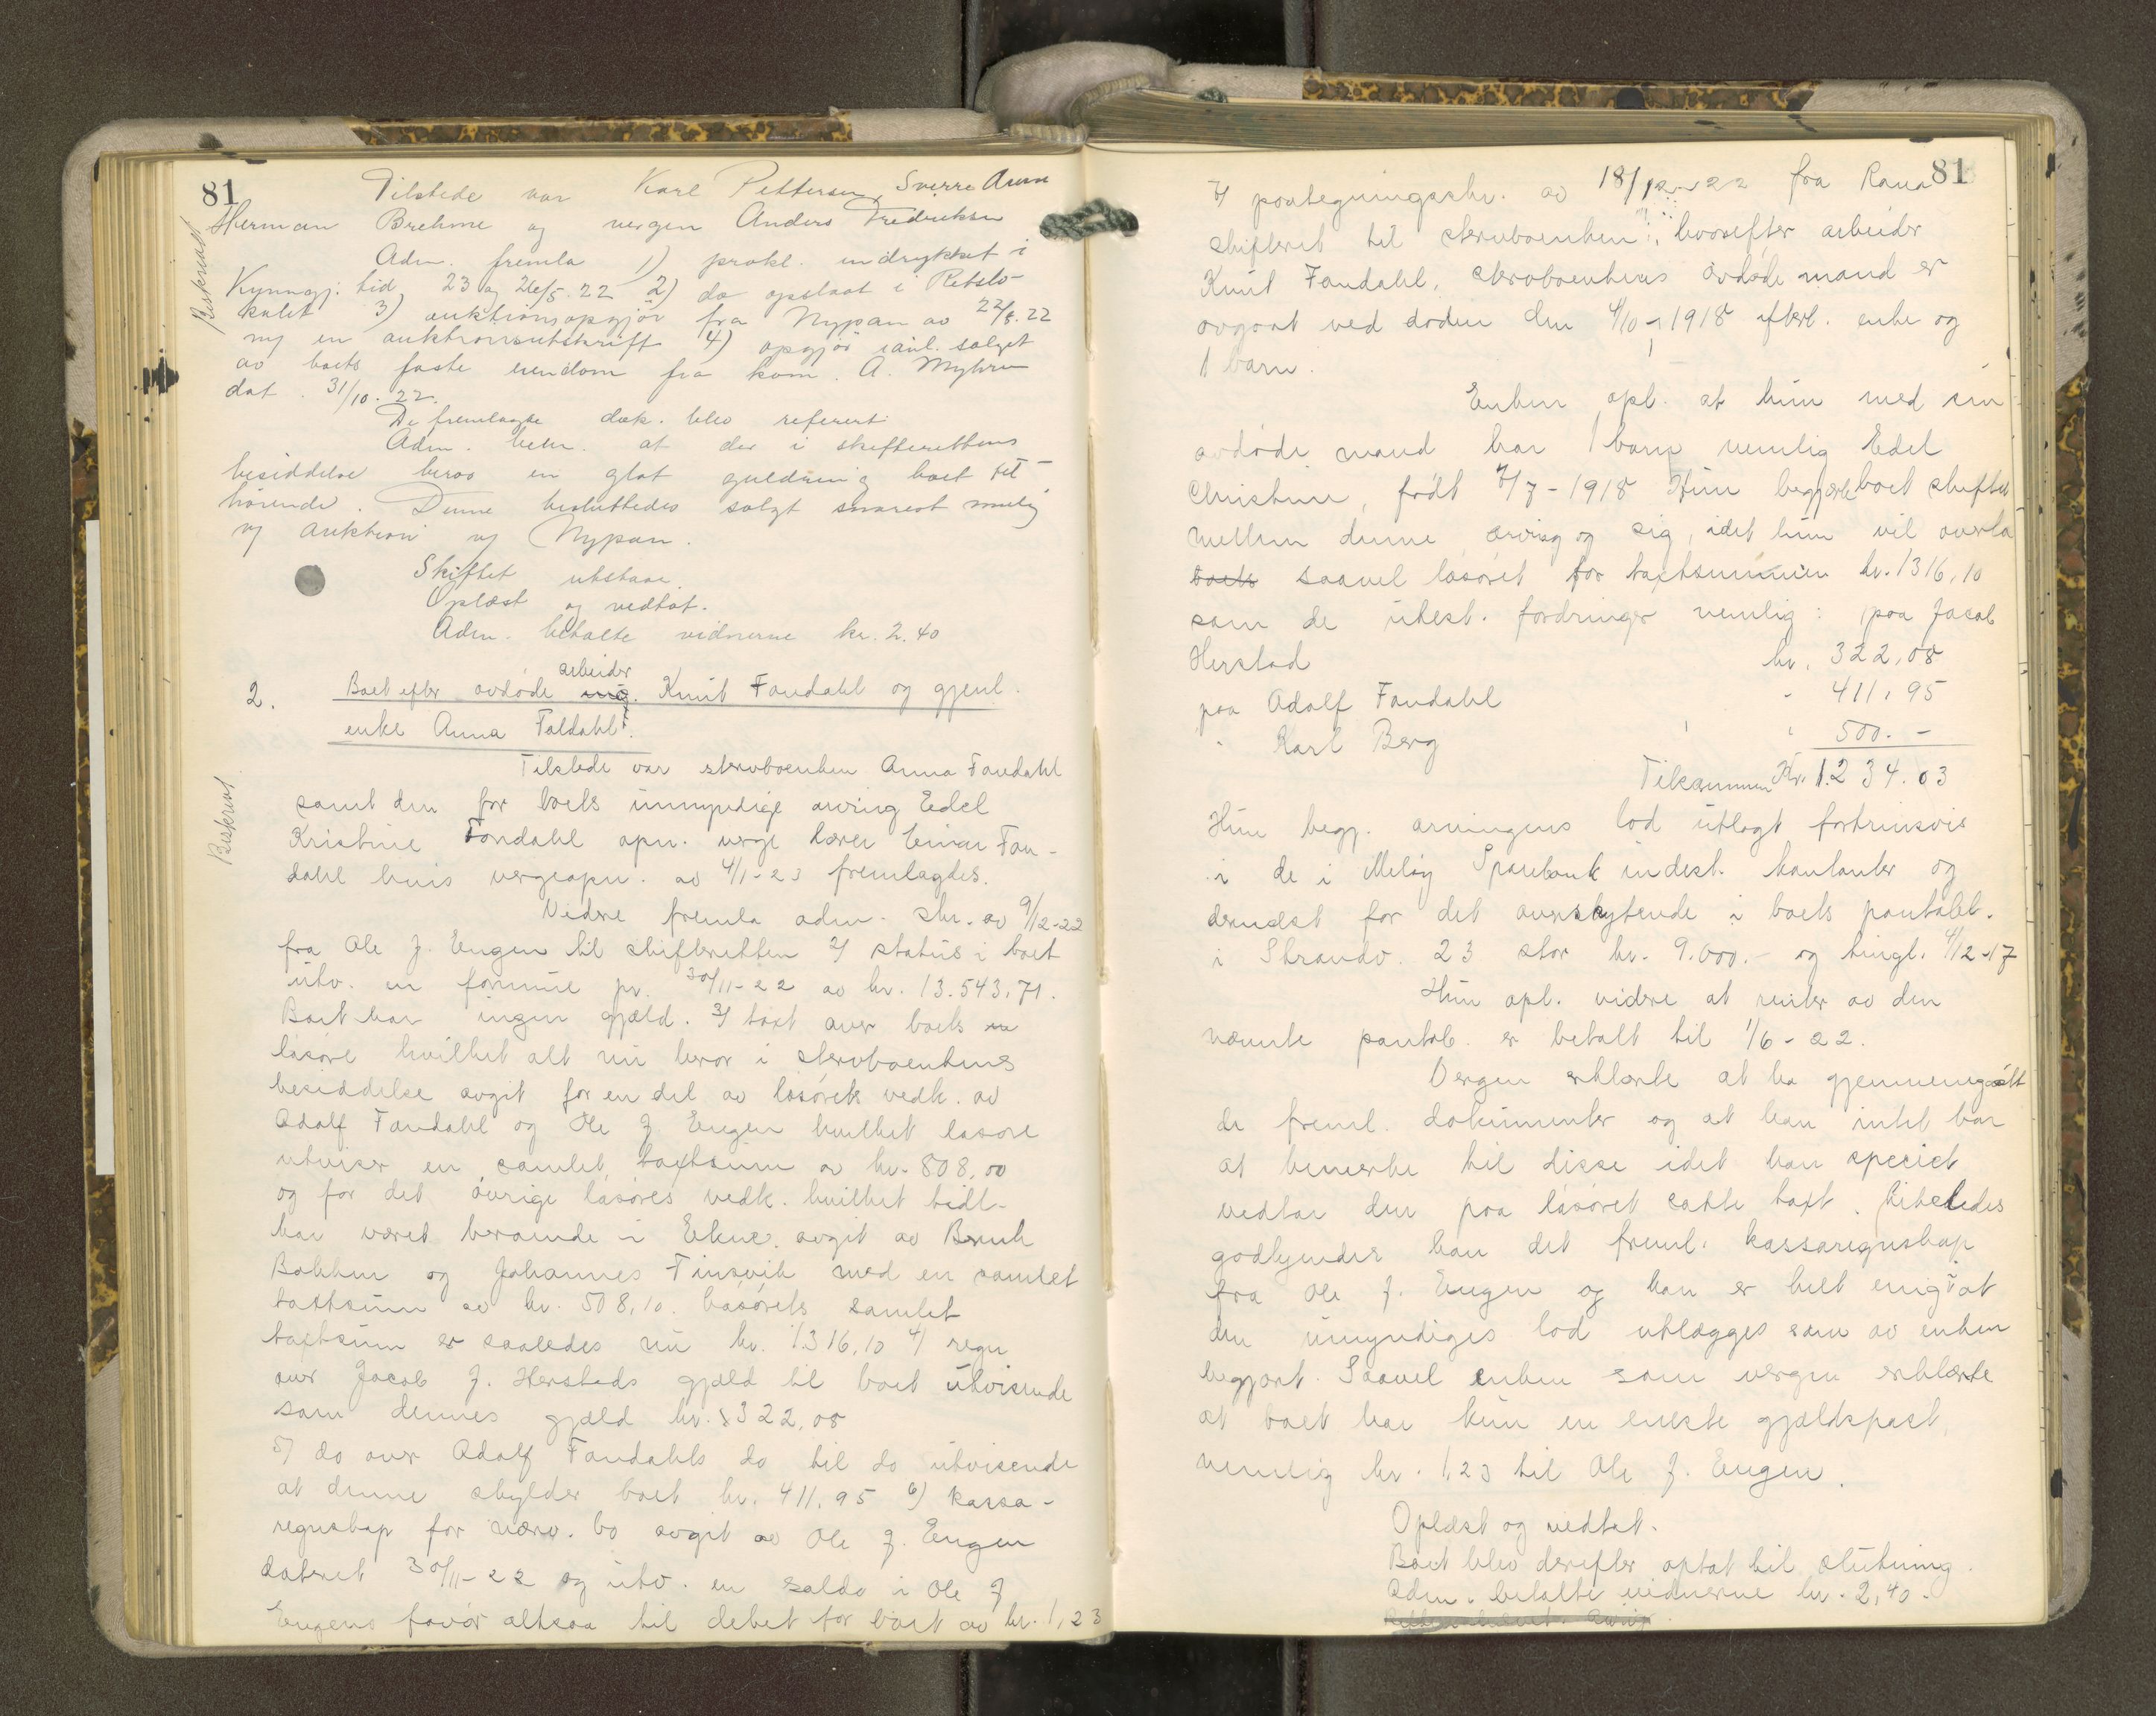 81
Tilstede var Karl Pettersen, Sverre Arne
Herman Brehme og vergen Anders Fredriksen
Beskrevet
Adm. fremla 1) prokl. indrykket i
Kunngj. tid 23 og 26/5. 22 2) do opslaat i Retslo-
kalet 3) auktionsopgjør fra Nypan av 22/8. 22
m/ en auktionsutskrift 4) opgjør i anl. salget
av boets faste eiendom fra kom. A. Myhre
dat. 31/10. 22.
De fremlagte dok. blev referert
Adm. bem. at der i skifterettens
besiddelse beror en glat guldring boet til-
hørende. Denne besluttedes solgt snarest mulig
v/ auktion v/ Nypan.
Skiftet utstaar.
Oplæst og vedtat.
Adm. betalte vidnerne kr. 2.40
2. Boet efter avdøde arbeider Knut Fondahl og gjenl.
enke Anna Foldahl.
Tilstede var stervboenken Anna Fondahl
Beskrevet
samt den for boets umyndige arving Edel
Kristine Fondahl opn. verge lærer Einar Fon-
dahl hvis vergeopn. av 4/1-23 fremlagdes.
Videre fremla adm. skr. av 9/12-22
fra Ole J. Engen til skifteretten 2) status i boet
utv. en formue pr. 30/11-22 av kr. 13.543,71.
Boet har ingen gjæld. 3) taxt over boets
løsøre hvilket alt nu beror i stervboenkens
besiddelse avgit for en del av løsørets vedk. av
Adolf Fondahl og Ole J. Engen hvilket løsøre
utviser en samlet taxtsum av kr. 808,00
og for det øvrige løsøres vedk. hvilket tidl.
har været beroende i avgit av Bernh
Bakken og Johannes Finsvik med en samlet
taxtsum av kr. 508,10. Løsørets samlet
taxtsum er saaledes nu kr. 1316,10 4) regn
over Jacob J. Herstads gjæld til boet utvisende
som dennes gjæld kr. 322,08
5) do over Adolf Fondahls do til do utvisende
at denne skylder boet kr. 411,95 6) kassa-
regnskap for nærv. bo avgit av Ole J. Engen
dateret 30/11-22 og utv. en saldo i Ole J
Engens favør altsaa til debet for boet av kr. 1,23
81
7) paategningsskr. av 18/12-22 fra Rana
skifteret til stervboenken, hvorefter arbeider
Knut Fondahl, stervboenkens avdøde mand er
avgaat ved døden den 4/10-1918 efterl. enke og
1 barn.
Enken opl. at hun med sin
avdøde mand har 1 barn nemlig Edel
Christine, født 4/7-1918 Hun begjærte boet skiftet
mellem denne arving og sig, idet hun vil overta
boets saavel løsøret for taxtsummen kr. 1316,10
som de utest. fordringer nemlig: paa Jacob
Herstad kr. 322,08
paa Adolf Fondahl - 411,95
- Karl Berg - 500.-
Tilsammen Kr. 1.234.03
Hun begj. arvingens lod utlagt fortrinsvis
i de i Meløy Sparebank indest. kontanter og
dernæst for det overskytende i boets pantobl.
i Strandv. 23 stor kr. 9.000.- og tingl. 4/12-17
Hun opl. videre at renter av den
nævnte pantob. er betalt til 1/6-22.
Vergen erklærte at ha gjennemgaatt
de freml. dokumenter og at han intet har
at bemerke til disse idet han speciet
vedtar den paa løsøret satte taxt. Likeledes
godkjender han det freml. kassaregnskap
fra Ole J. Engen og han er helt enig i at
den umyndiges lod utlægges som av enken
begjært. Saavel enken som vergen erklærte
at boet har kun en eneste gjældspost,
nemlig kr. 1,23 til Ole J. Engen.
Oplæst og vedtat.
Boet blev derefter optat til slutning.
Adm. betalte vidnerne kr. 2,40.